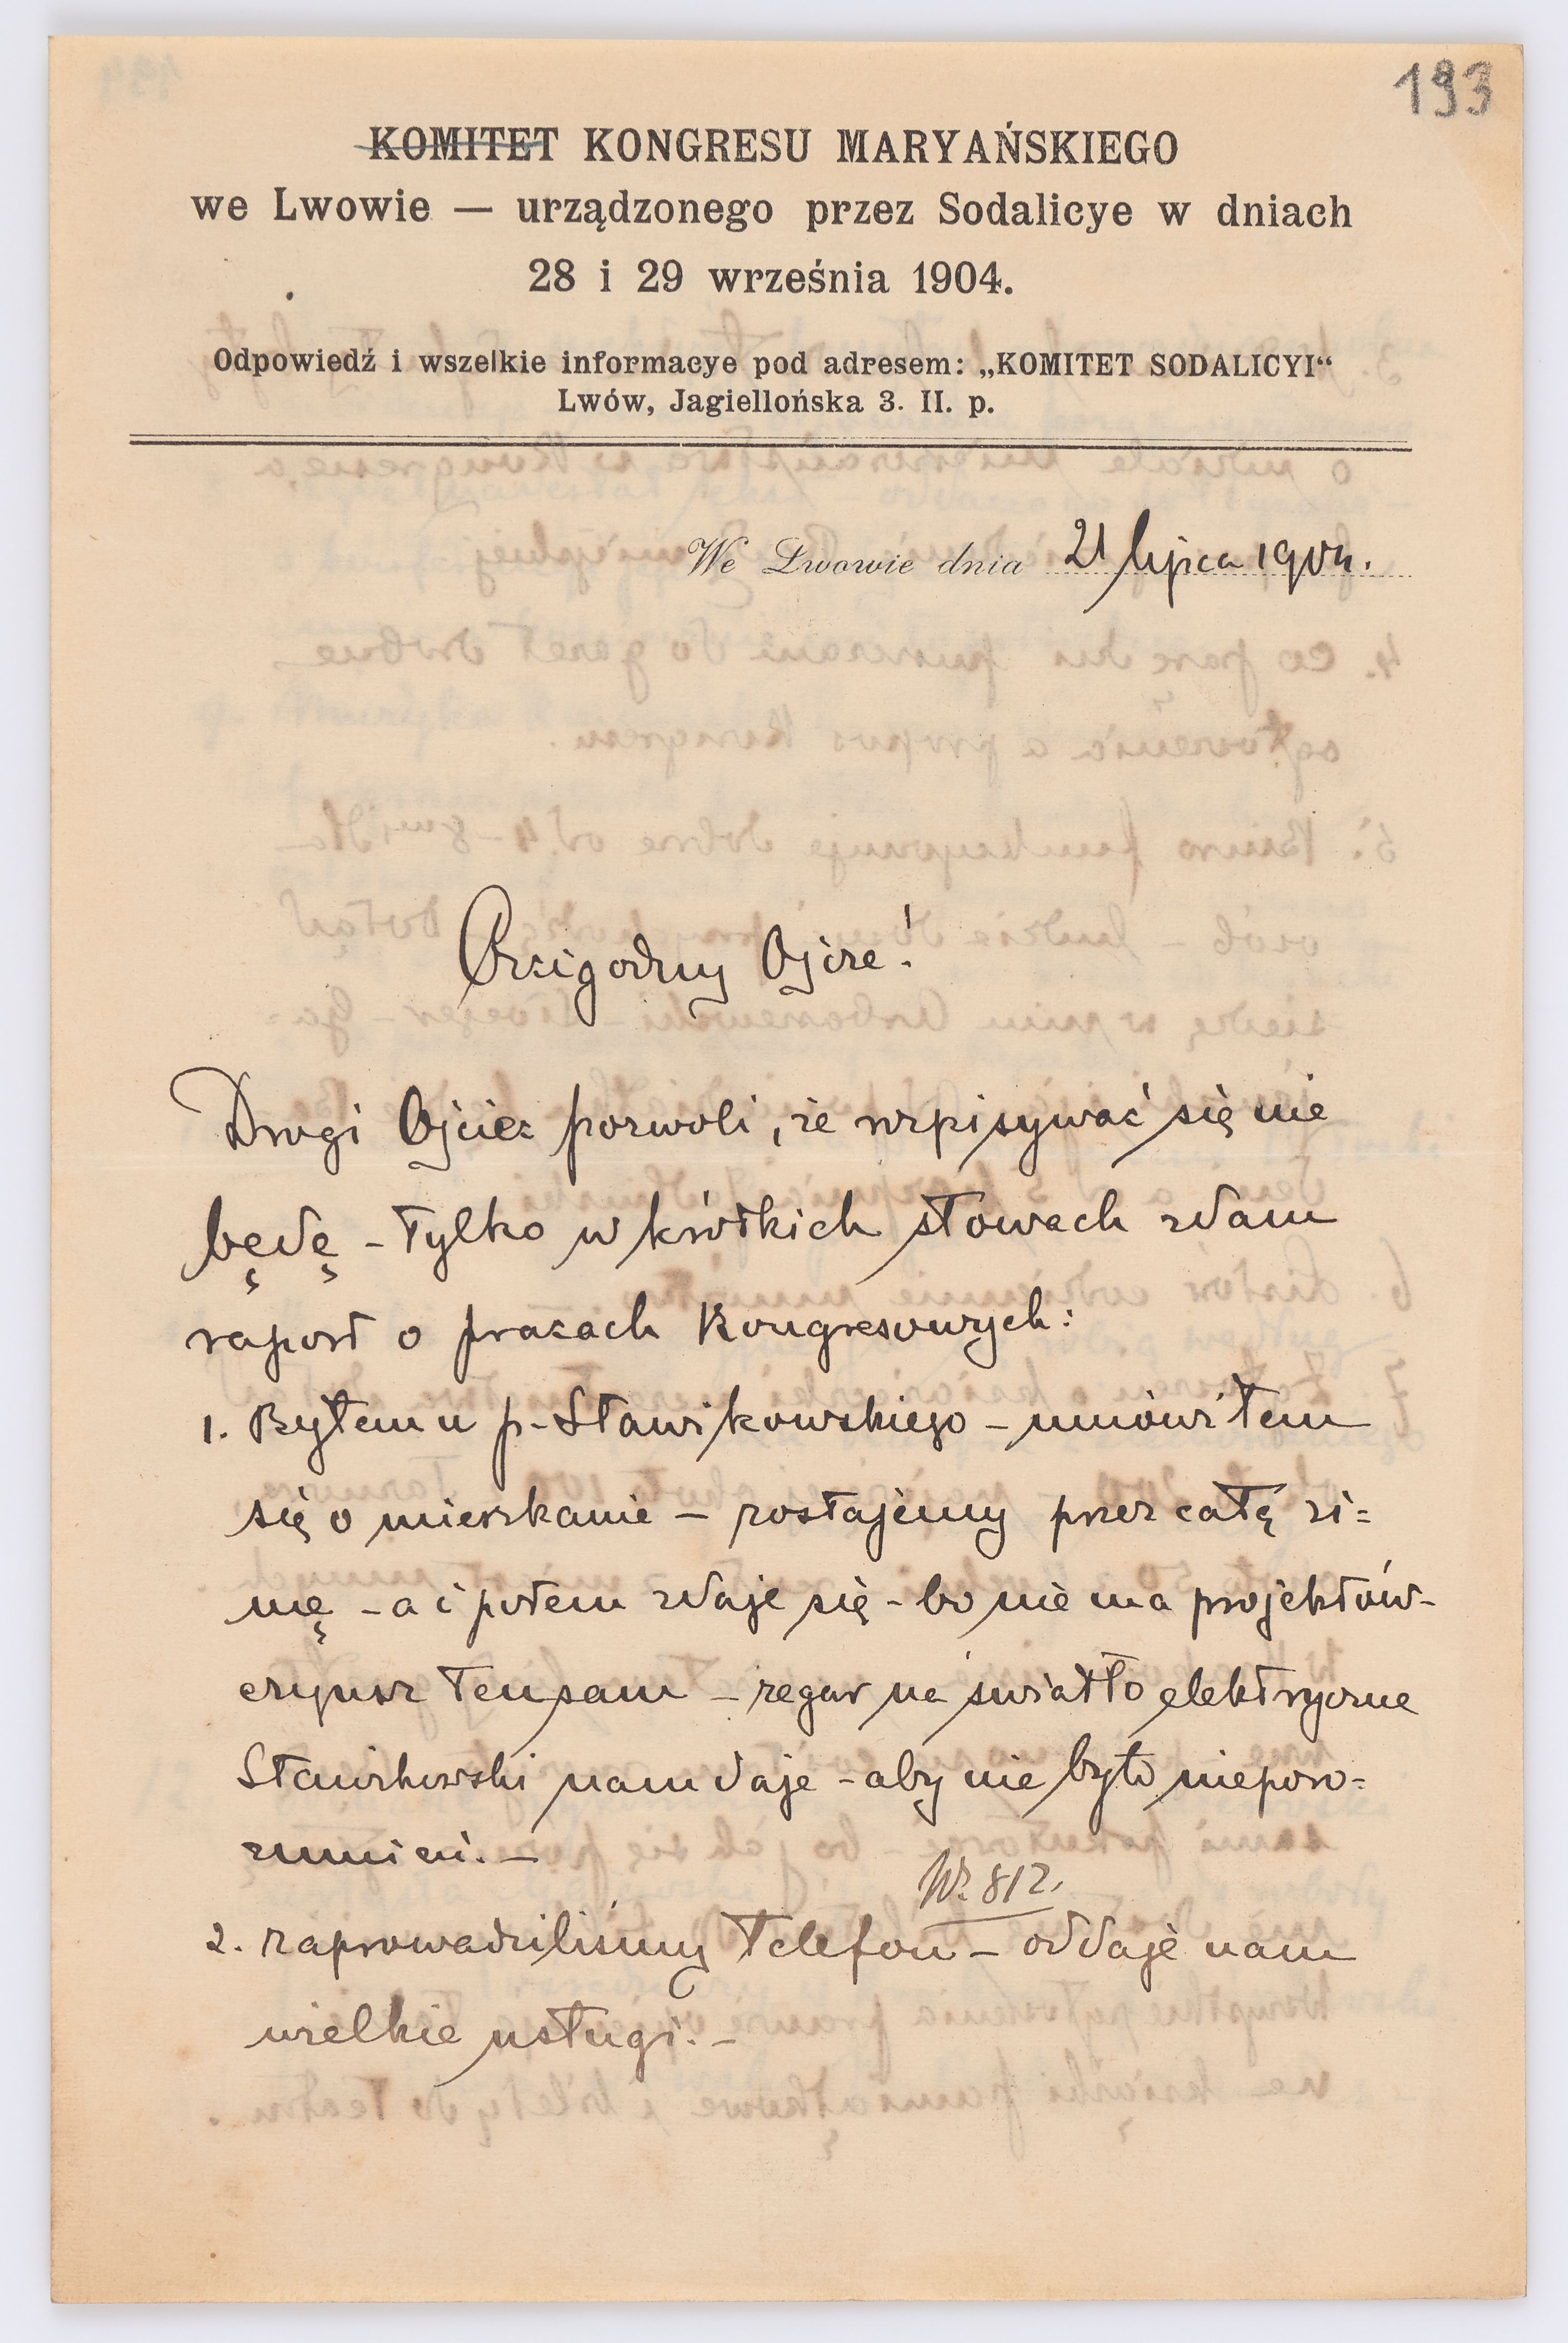 193
KOMITET KONGRESU MARYAŃSKIEGO
we Lwowie — urządzonego przez Sodalicye w dniach
28 i 29 września 1904.
Odpowiedź i wszelkie informacye pod adresem: „KOMITET SODALICYI“
Lwów, Jagiellońska 3. II. p.
We Lwowie dnia 21 lipca 1904.
Czcigodny Ojcze!
Drogi Ojciec pozwoli, że wypisywać się nie
będę - tylko w krótkich słowach zdam
raport o pracach Kongresowych:
1. Byłem u p. Sławikowskiego - umówiłem
się o mieszkanie - zostajemy przez całą zi=
mę - a i potem zdaje się - bo nie ma projektów -
czynsz ten sam - zegar na światło elektryczne
Sławikowski nam daje - aby nie było nieporo=
zumień. -
Nr. 812.
2. Zaprowadziliśmy telefon - oddaje nam
wielkie usługi. -